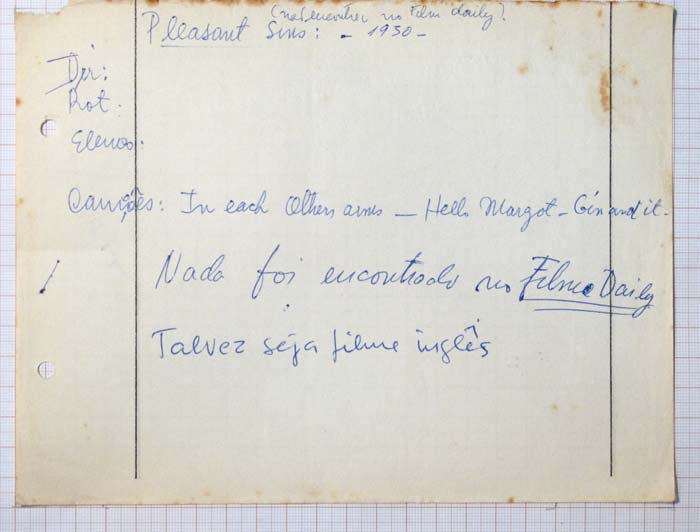 (não encontrei no Film daily)
Pleasant Sins: - 1930 -
Dir:
Rot:
Elenco:
Canções: In each Others arms - Hello Margot - Gin and it -
Nada foi encontrado no Filme Daily
Talvez seja filme inglês